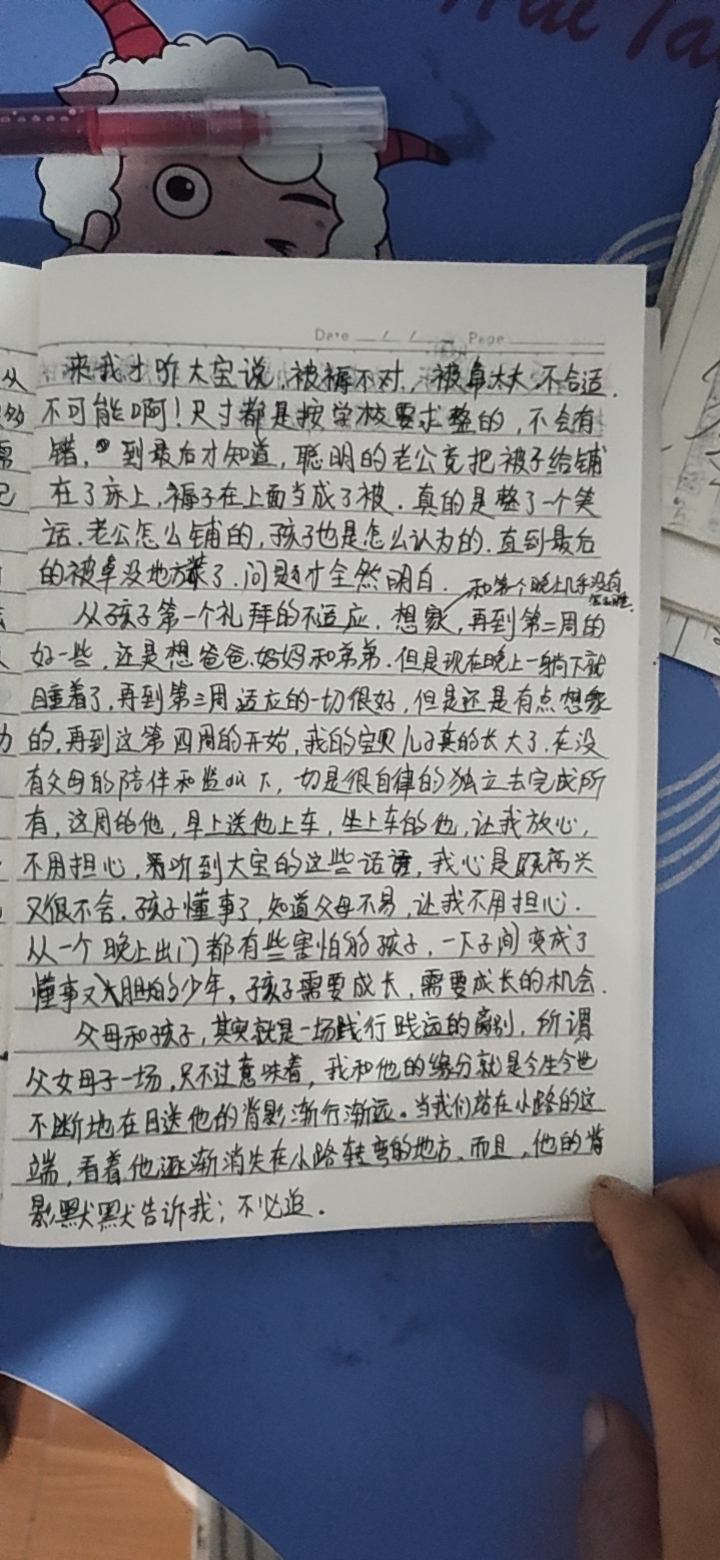 Date / / Page
来我才听大宝说,被褥不对,被单太大,不合适.
不可能啊!尺寸都是按学校要求整的,不会有
错,到最后才知道,聪明的老公竟把被子给铺
在了床上,褥子在上面当成了被.真的是整了一个笑
话.老公怎么铺的,孩子也是怎么认为的.直到最后
的被单没地方装了.问题才全然明白.
和第一个晚上几乎没有
从孩子第一个礼拜的不适应.想家,再到第二周的
好一些,还是想爸爸.妈妈和弟弟.但是现在晚上一躺下就
睡着了,再到第三周适应的一切很好,但是还是有点想家
的,再到这第四周的开始,我的宝贝儿子真的长大了.在没
有父母的陪伴和监 下,一切是很自律的独立去完成所
有,这周的他,早上送他上车,坐上车的他,让我放心,
不用担心,听到大宝的这些话语,我心是既高兴
又很不舍.孩子懂事了,知道父母不易,让我不用担心.
从一个晚上出门都有些害怕的孩子,一下子间变成了
懂事又大胆的少年。孩子需要成长,需要成长的机会.
父母和孩子,其实就是一场践行践远的离别,所谓
父女母子一场,只不过意味着,我和他的缘分就是今生今世
不断地在目送他的背影渐行渐远。当我们站在小路的这
端,看着他逐渐消失在小路转弯的地方.而且,他的背
影默默告诉我;不必追.